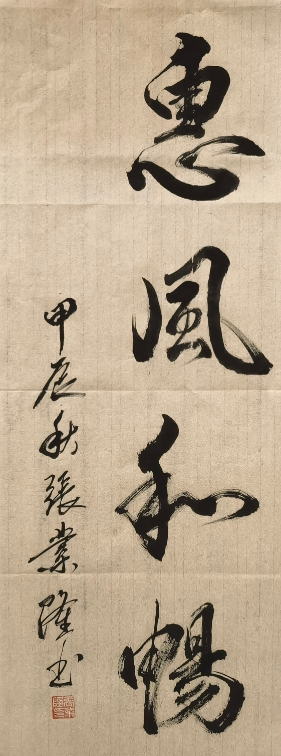 惠風和暢
甲辰秋張業隆书